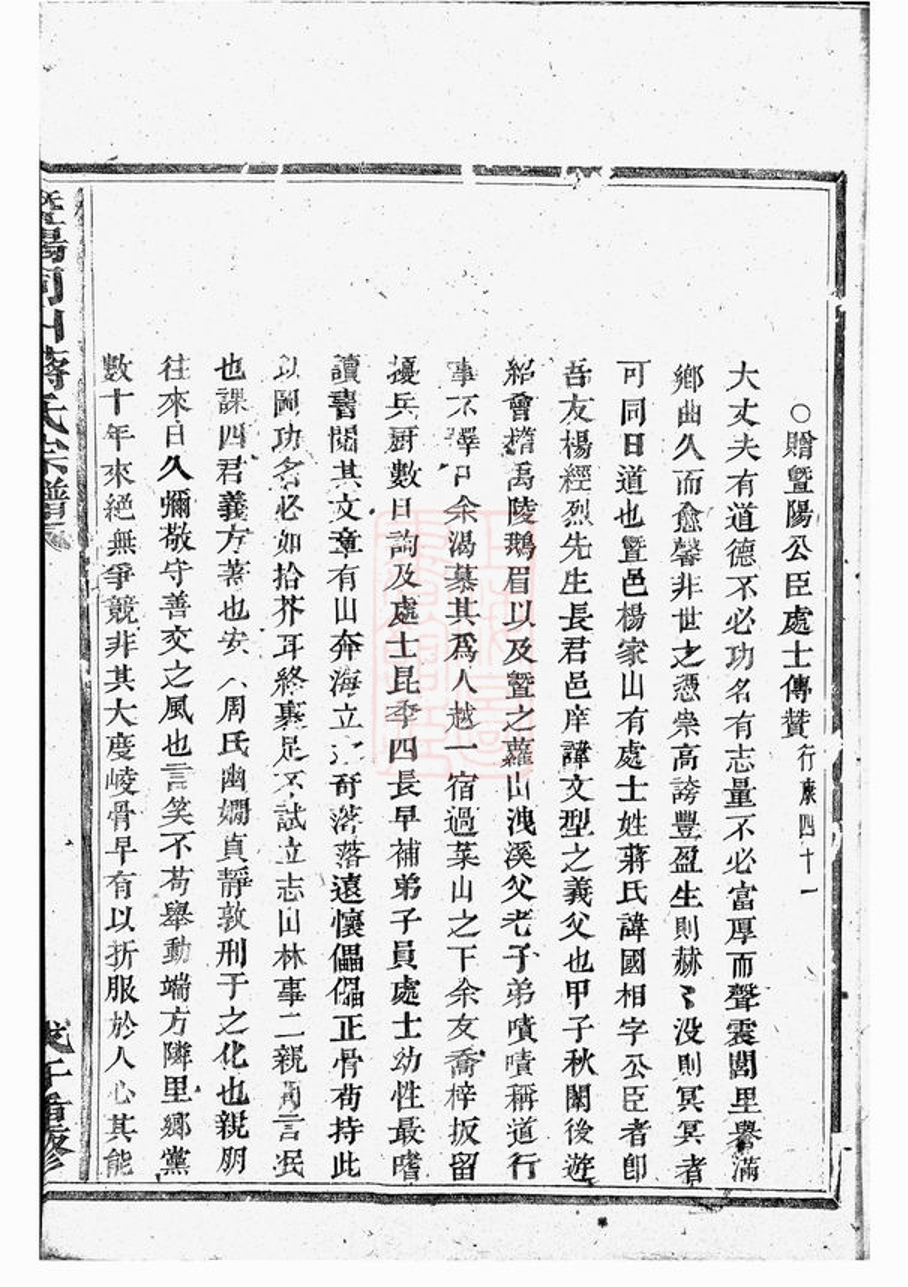 ○贈暨陽公臣處士傳贊行康四十一
大丈夫有道德不必功名有志量不必富厚而聲震閭里譽滿
鄉曲久而愈馨非世之憑崇高誇豐盈生則赫〻没則冥冥者
可同日道也暨邑楊家山有處士姓蔣氏諱國相字公臣者卽
吾友楊經烈先生長君邑庠諱文型之義父也甲子秋闈後遊
紹會揩禹陵鵝眉以及暨之蘿山洩溪父老子弟嘖嘖稱道行
事不擇口余渴慕其爲人越一宿過菜山之下余友喬梓扳留
擾兵厨數日詢及處士昆季四長早補弟子員處士幼性最嗜
讀書閱其文章有山奔海立之奇落落遠懷儡儡正骨苟持此
以圖功名必如拾芥耳終裹足不試立志山林事二親聞言泯
也課四君義方著也安人周氏幽嫻貞靜敦刑于之化也親朋
往來日久彌敬守善交之風也言笑不苟舉動端方隣里鄉黨
數十年來絕無爭競非其大度崚骨早有以折服於人心其能
暨陽同山蔣氏宗譜
戊子重修